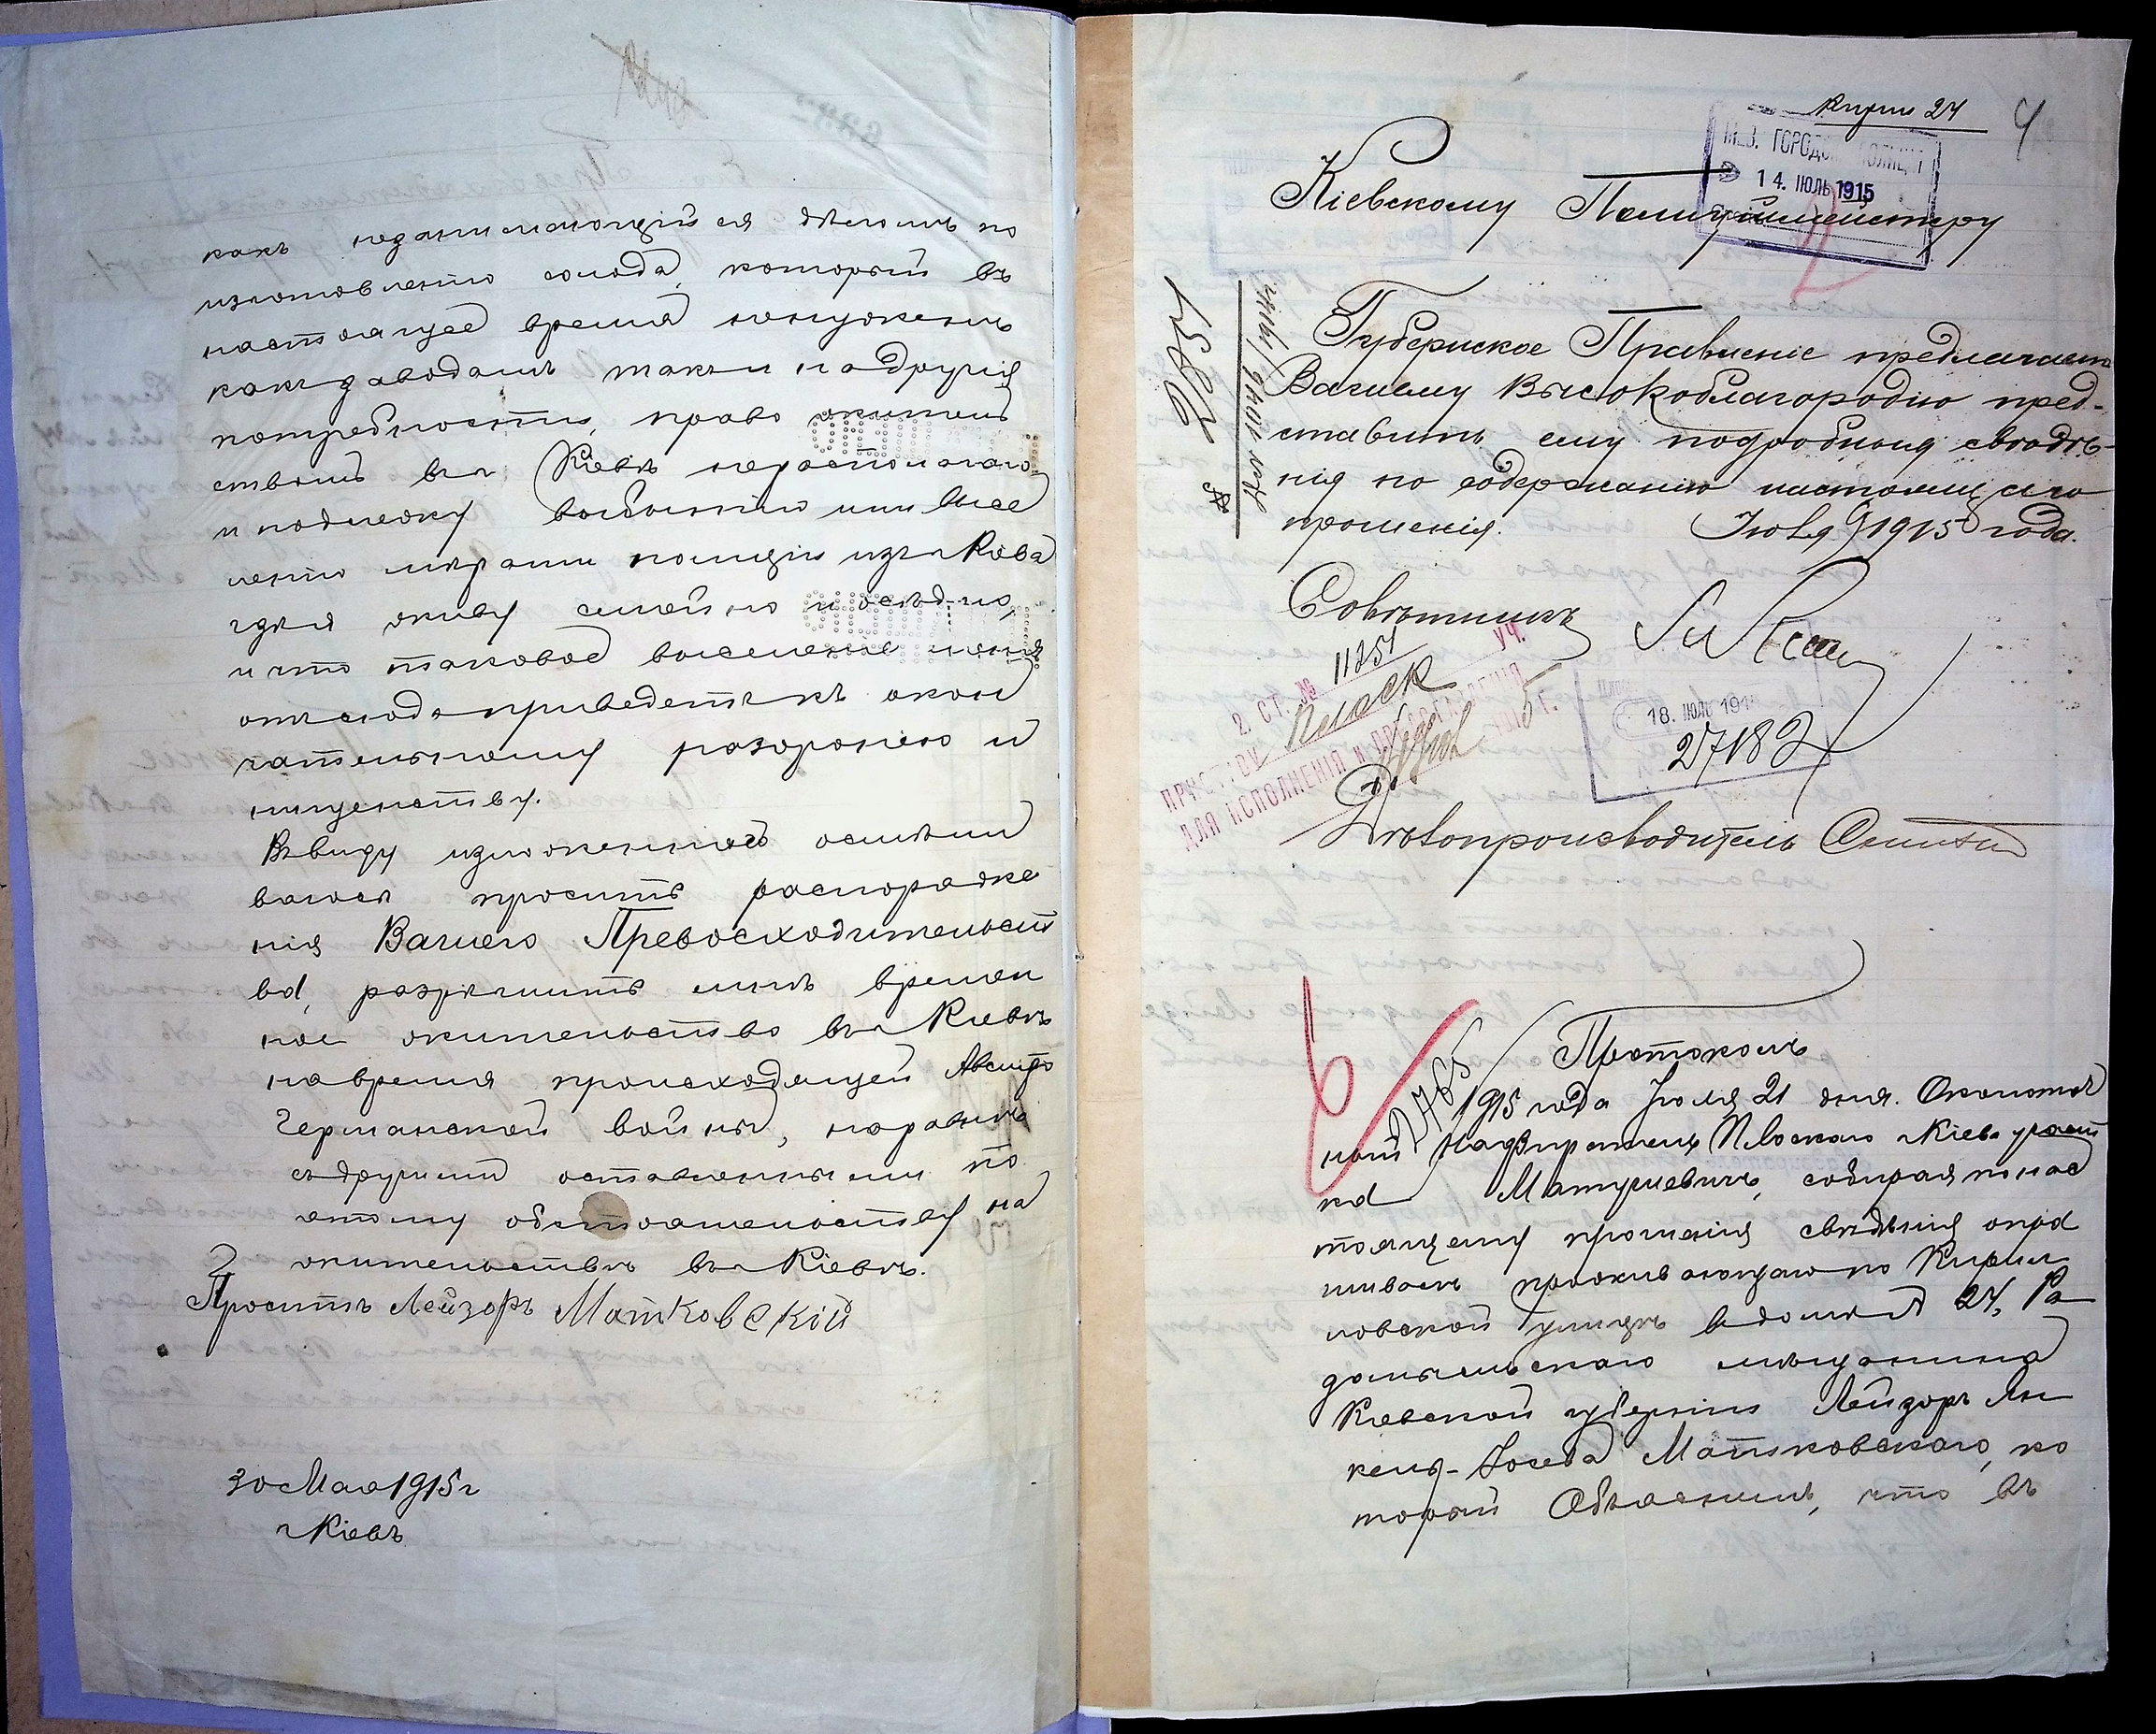 какъ незанимающійся дѣломъ по
изготовленію солода, который въ
настоящее время ненуженъ
какъ заводамъ такъ и на другія
потребности, право житель
ствомъ въ г Кіевѣ нерасполагаю
и подлежу выбытію или высе
ленію мѣрами полиціи изъ г Кіева
гдѣ я живу семейно и осѣдло,
и что таковое выселеніе меня
отсюда приведетъ къ окон
чательному разоренію и
нищенству.
Ввиду изложеннаго осмѣли
ваюсь просить распоряже
нія Вашего Превосходительст
ва, разрѣшить мнѣ времен
ное жительство въ г Кіевѣ
на время происходящей Австро
Германской войны, наравнѣ
съ другими оставленными по
этому обстоятельству на
жительствѣ въ г Кіевѣ.
Проситъ Лейзоръ Матковскій
30 Мая 1915 г
г Кіевъ
Кирил 24
4
ГОРОДСК ПОЛИЦІ
14. ІЮЛЬ 1915
Кіевскому Полиціймейстеру
Губернское Правленіе предлагаетъ
Вашему Высокоблагородію пред-
ставить ему подробныя свѣдѣ-
нія по содержанію настоящаго
прошенія. Іюля 9 1915 года.
Совѣтникъ
2. СТ. № 11257 УЧ.
ПРИСТАВУ Плоск
ДЛЯ ИСПОЛНЕНІЯ И
18. ІЮЛ 191
27182
Дѣлопроизводитель
Протоколъ
1915 года Іюля 21 дня. Околоточ
ный Надзиратель Плоскаго г Кіева участ
ка Матушевичъ, собирая по нас
тоящему прошенія свѣдѣнія опра
шивалъ проживающаго по Кирил
ловской улицѣ в домѣ № 24, Ра
домысльскаго мѣщанина
Кіевской губерніи Лейзоръ Ян
келя-Іосефа Матковскаго, ко
торый Объяснилъ, что въ